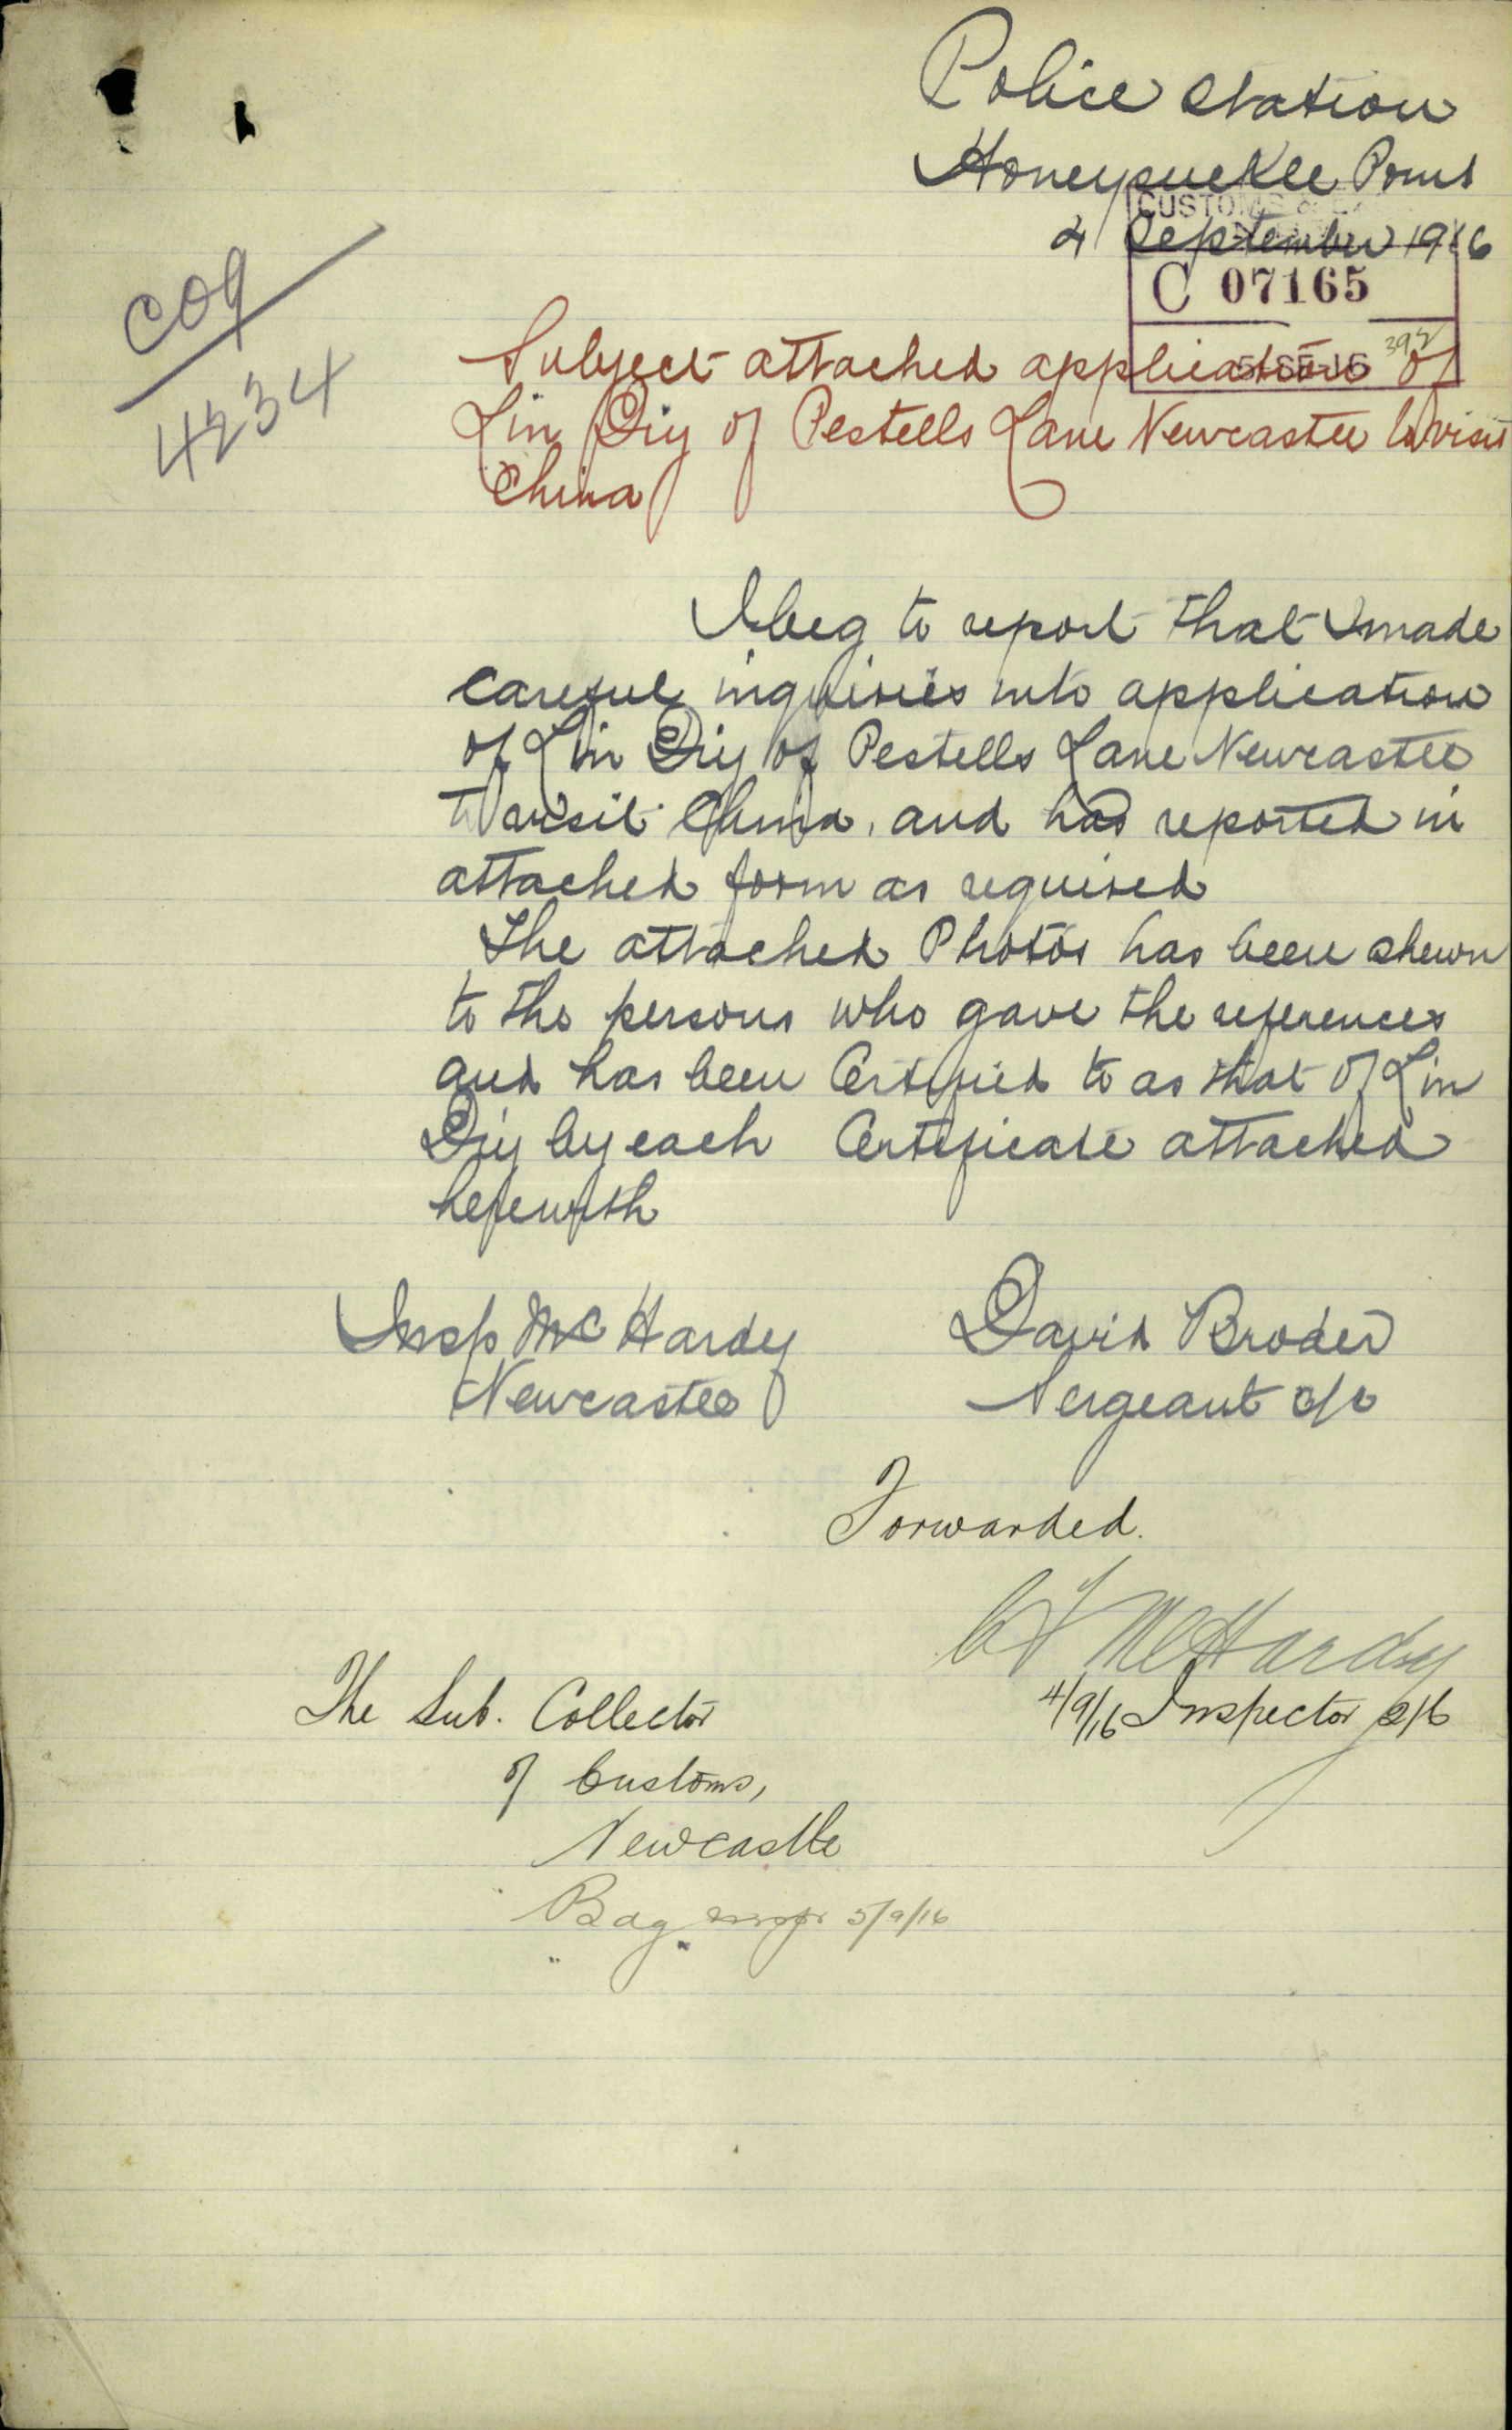 Police Station
Honeysuckle Point
4 September 1916
CUSTOMS &
C 07165
392
5 SE 16
C09
4234
Subject attached application of
Lin Diy of Pestells Lane Newcastle to visit
China
I beg to report that I made
careful inquiries into application
of Lin Diy of Pestells Lane Newcastle
to visit China, and has reported in
attached form as required
The attached Photos has been shewn
to the persons who gave the references
and has been Certified to as that of Lin
Diy by each Certificate attached
herewith
Insp McHardy
Newcastle
David Broder
Sergeant o/c
Forwarded.
McHardy
4/9/16 Inspector
The Sub. Collector
of Customs,
Newcastle
Bag 5/9/16